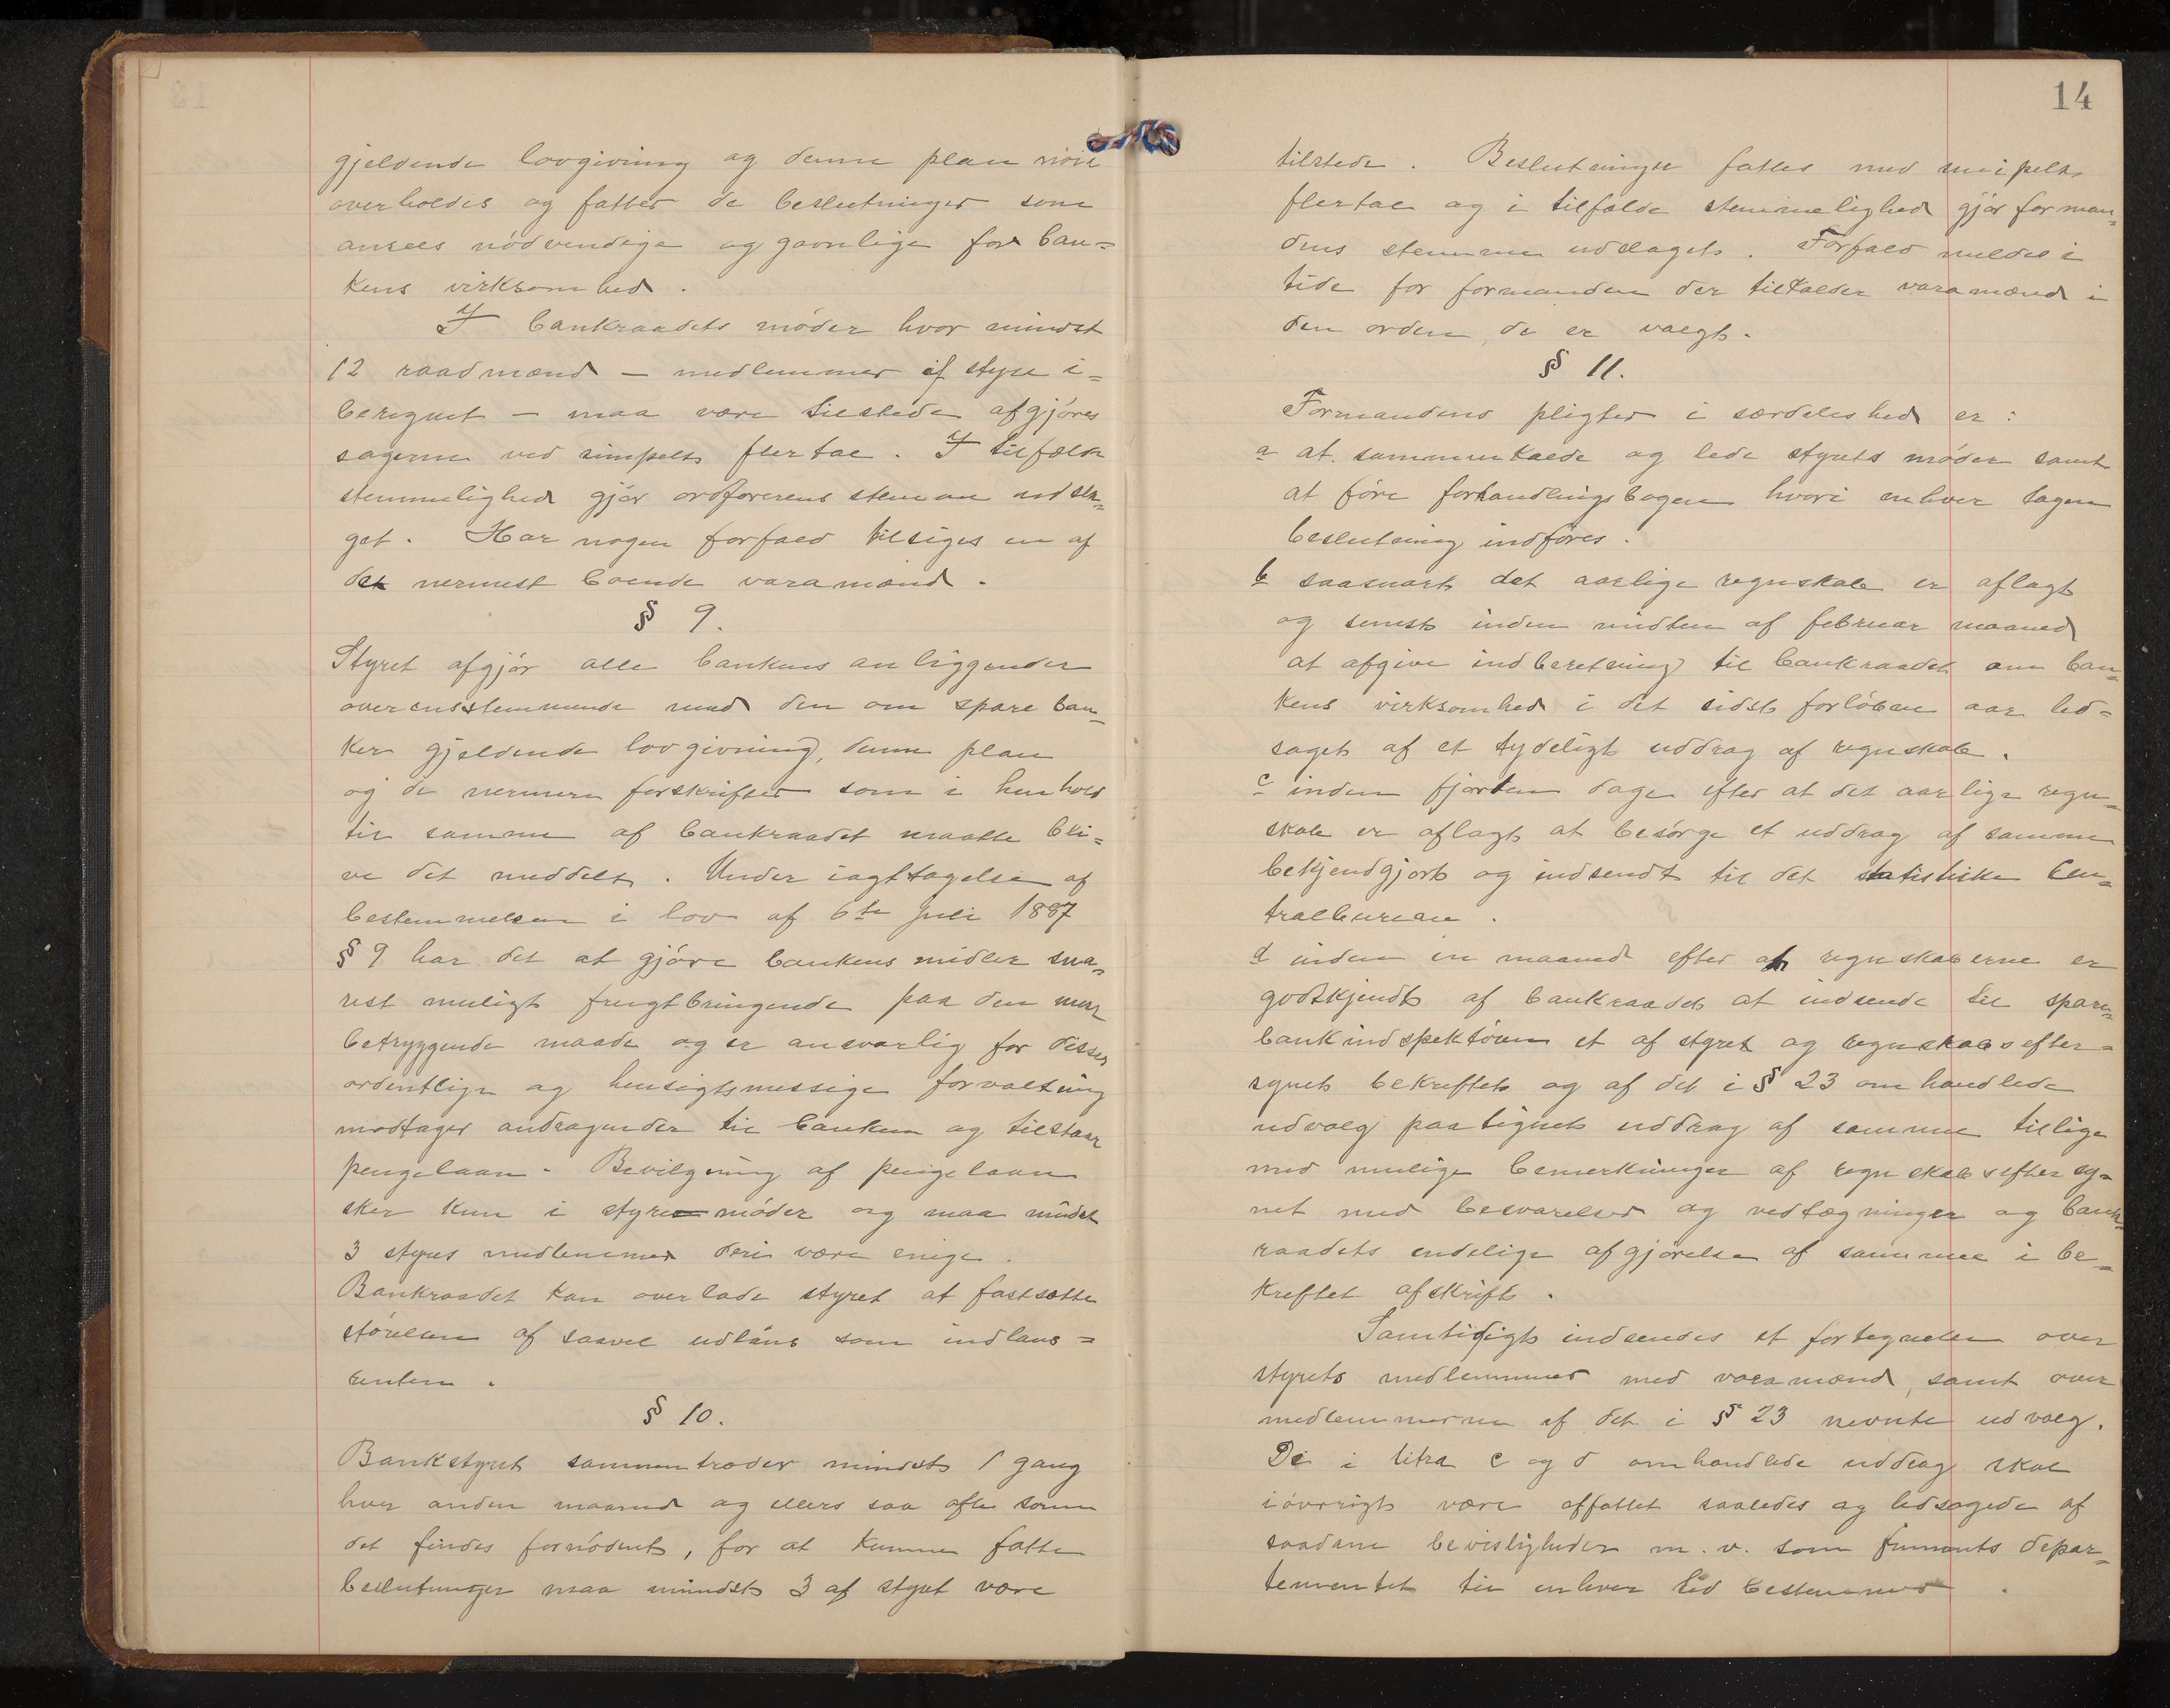 gjeldende lovgivning og denne plan nöie
overholdes og fatter de beslutninger som
ansees nödvendige og gavnlige for ban=
kens virksomhed.
I bankraadets möder hvor mindst
12 raadmænd — medlemmer af styre i=
beregnet — maa være tilstede afgjöres
sagerne ved simpelt flertal. I tilfælde
stemmelighed gjör ordförerens stemme udsla=
get. Har nogen forfald tilsiges en af
de nermest boende varamænd.
§ 9.
Styret afgjör alle bankens anliggender
overensstemmende med den om spareban=
ker gjeldende lovgivning, denne plan
og de nermere forskrifter som i henhold
til samme af bankraadet maatte bli=
ve det meddelt. Under iagttagelse af
bestemmelsen i lov af 6te juli 1887
§ 9 har det at gjöre bankens midler sna=
rest muligt frugtbringende paa den mest
betryggende maade og er ansvarlig for disses
ordentlige og hensigtsmessige forvaltning
modtager andragender til banken og tilstaar
pengelaan. Bevilgning af pengelaan
sker kun i styremöder og maa mindst
3 styres medlemmer deri være enige.
Bankraadet kan overlade styret at fastsætte
störelsen af saavel udlåns som indlaans=
renten.
§ 10.
Bankstyret sammentræder mindst 1 gang
hver anden maaned og ellers saa ofte som
det findes fornödent, for at kunne fatte
beslutninger maa mindst 3 af styret være
14
tilstede. Beslutninger fattes med simpelt
flertal og i tilfælde stemmelighed gjör forman=
dens stemme udslaget. Forfald meldes i
tide for formanden der tilkalder varamænd i
den orden, de er valgt.
§ 11.
Formandens pligter i særdeleshed er:
a at sammenkalde og lede styrets möder samt
at före forhandlingsbogen hvori enhver tagen
beslutning indföres.
b saasnart det aarlige regnskab er aflagt
og senest inden midten af februar maaned
at afgive indberetning til bankraadet om ban=
kens virksomhed i det sidst forlöbne aar led=
saget af et tydeligt uddrag af regnskab.
c inden fjorten dage efter at det aarlige regn=
skab er aflagt at besörge et uddrag af samme
bekjendgjort og indsendt til det statistiske Cen=
tralbureau.
d inden en maaned efter at regnskaberne er
godkjendt af bankraadet at indsende til spare=
bankindspektören et af styret og regnskabsefter=
synet bekreftet og af det i § 23 omhandlede
udvalg paategnet uddrag af samme tillige
med mulige bemerkninger af regnskabseftersy=
net med besvarelser og vedtægninger og bank=
raadets endelige afgjörelse af samme i be=
kreftet afskrift.
Samtidigt indsendes et fortegnelse over
styrets medlemmer med varamænd, samt over
medlemmerne af det i § 23 nevnte udvalg.
De i litra c og d omhandlede uddrag skal
iövrigt være affattet saaledes og ledsagede af
saadane bevisligheder m.v. som finants depar=
tementet til enhver tid bestemmer.